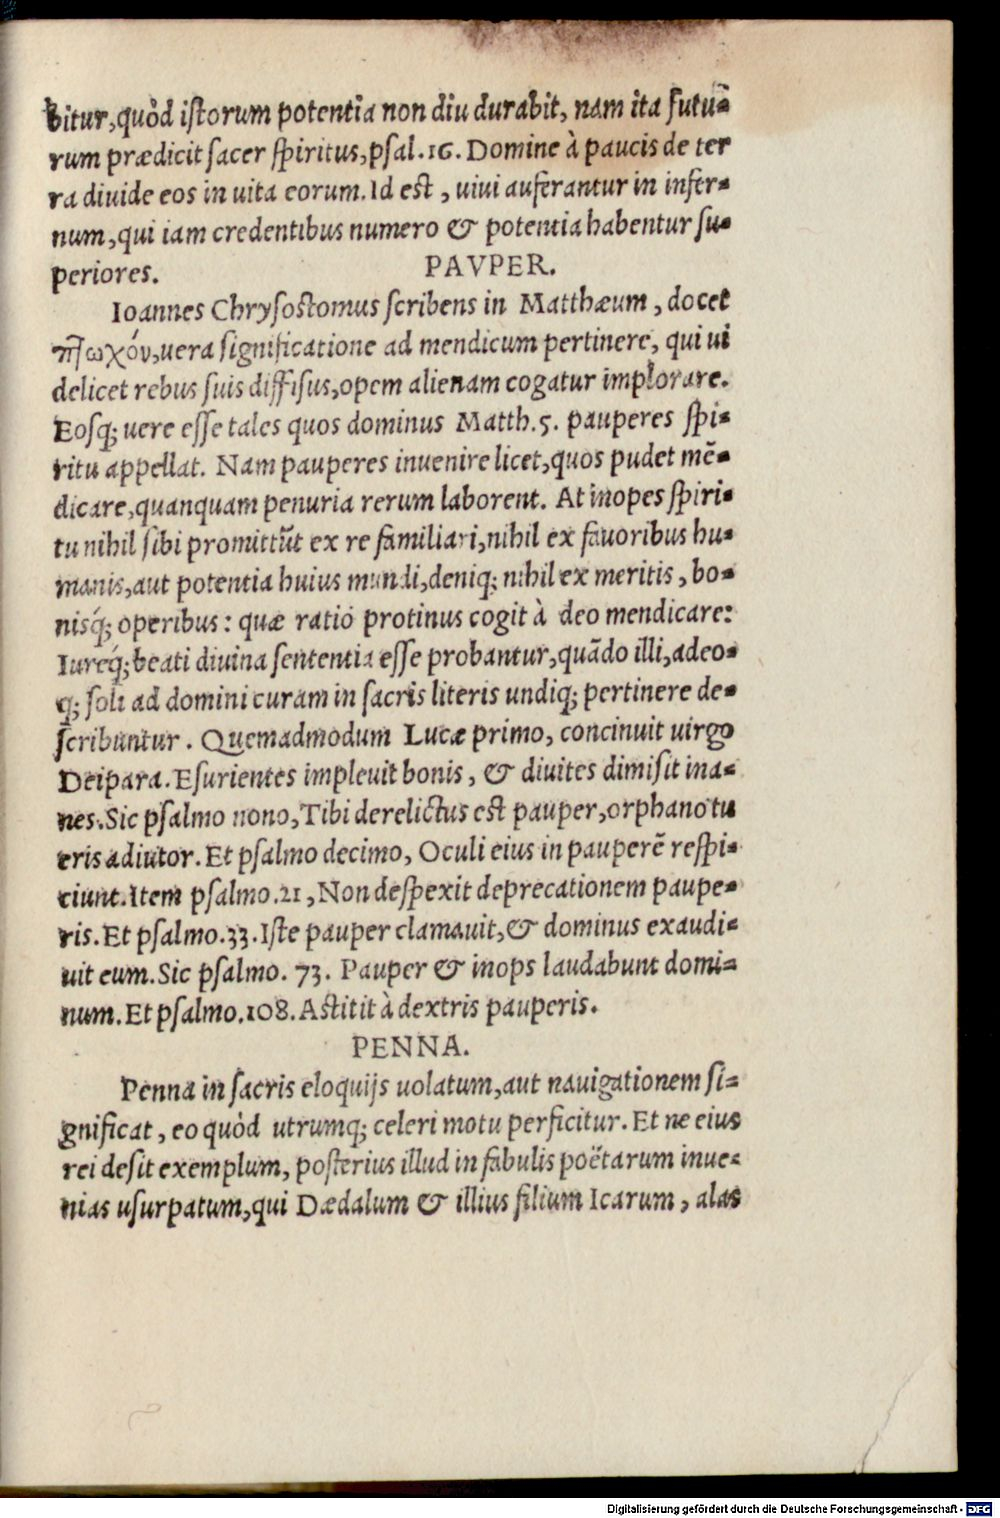 bitur, quòd istorum potentia non diu durabit, nam ita futu-
rum prædicit sacer spiritus, psal. 16. Domine à paucis de ter
ra divide eos in vita eorum. Id est, uiui auferantur in infer-
num, qui iam credentibus numero & potentia habentur su-
periores. PAVPER.
Ioannes Chrysostomus scribens in Matthæum, docet
πτωχόν, uera significatione ad mendicum pertinere, qui ui
delicet rebus suis diffisus, opem alienam cogatur implorare.
Eosq; uere esse tales quos dominus Matth. 5. pauperes spi-
ritu appellat. Nam pauperes inuenire licet, quos pudet mē-
dicare, quanquam penuria rerum laborent. At inopes spiri-
tu nihil sibi promittūt ex re familiari, nihil ex fauoribus hu-
manis, aut potentia huius mundi, deniq; nihil ex meritis, bo-
nisq́; operibus: quæ ratio protinus cogit à deo mendicare:
Iureq́; beati diuina sententia esse probantur, quādo illi, adeo-
q; soli ad domini curam in sacris literis undiq; pertinere de-
scribuntur. Quemadmodum Lucæ primo, concinuit virgo
Deipara. Esurientes impleuit bonis, & diuites dimisit ina-
nes. Sic psalmo nono, Tibi derelictus est pauper, orphano tu
eris adiutor. Et psalmo decimo, Oculi eius in pauperē respi-
ciunt. Item psalmo. 21, Non despexit deprecationem paupe-
ris. Et psalmo. 33. Iste pauper clamauit, & dominus exaudi-
uit eum. Sic psalmo. 73. Pauper & inops laudabunt domi-
num. Et psalmo. 108. Astitit à dextris pauperis.
PENNA.
Penna in sacris eloquijs uolatum, aut nauigationem si-
gnificat, eo quòd utrumq; celeri motu perficitur. Et ne eius
rei desit exemplum, posterius illud in fabulis poëtarum inue-
nias usurpatum, qui Dædalum & illius filium Icarum, alas
Digitalisierung gefördert durch die Deutsche Forschungsgemeinschaft - DFG